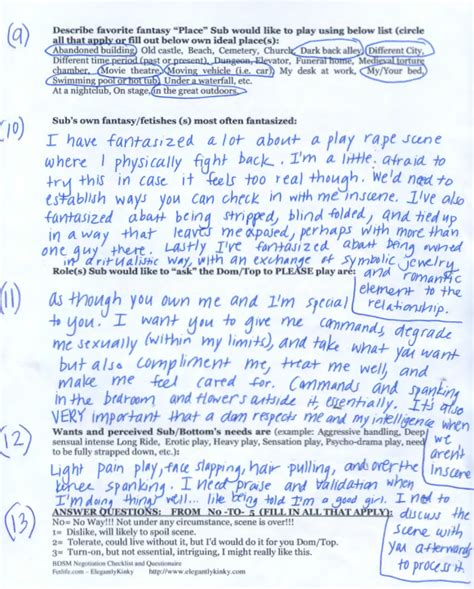 (9) Describe favorite fantasy "Place" Sub would like to play using below list (circle
all that apply or fill out below own ideal place(s):
Abandoned building, Old castle, Beach, Cemetery, Church, Dark back alley, Different City,
Different time period (past or present), Dungeon, Elevator, Funeral home, Medieval torture
chamber, Movie theatre, Moving vehicle (i.e. car), My desk at work, My/Your bed,
Swimming pool or hot tub, Under a waterfall,
At a nightclub, On stage, in the great outdoors.
(10) Sub's own fantasy/fetishes (s) most often fantasized:
I have fantasized a lot about a play rape scene
where I physically fight back. I'm a little afraid to
try this in case it feels too real though. We'd need to
establish ways you can check in with me inscene. I've also
fantasized about being stripped, blind folded, and tied up
in a way that leaves me exposed, perhaps with more than
one guy there. Lastly I've fantasized about being owned
in a ritualistic way, with an exchange of symbolic jewelry
and romantic
element to the
relationship.
(11) Role(s) Sub would like to "ask" the Dom/Top to PLEASE play are:
as though you own me and I'm special
to you. I want you to give me commands, degrade
me sexually (within my limits), and take what you want
but also compliment me, treat me well, and
make me feel cared for. Commands and spanking
in the bedroom and flowers outside it, essentially. It's also
VERY important that a dom respects me and my intelligence when
we
aren't
inscene
(12) Wants and perceived Sub/Bottom's needs are (example: Aggressive handling, Deep
sensual intense Long Ride, Erotic play, Heavy play, Sensation play, Psycho-drama play, need
to be fully strapped down, etc.):
Light pain play, face slapping, hair pulling, and over the
knee spanking. I need praise and validation when
I'm doing things well... like being told I'm a good girl. I need to
discuss the
scene with
you afterwards
to process it.
(13) ANSWER QUESTIONS: FROM No -TO- 5 (FILL IN ALL THAT APPLY):
No= No Way!!! Not under any circumstance, scene is over!!!
1= Dislike, will likely to spoil scene.
2= Tolerate, could live without it, but I'd would do it for you Dom/Top.
3= Turn-on, but not essential, intriguing, I might really like this.
BDSM Negotiation Checklist and Questionaire
Fetlife.com – ElegantlyKinky http://www.elegantlykinky.com